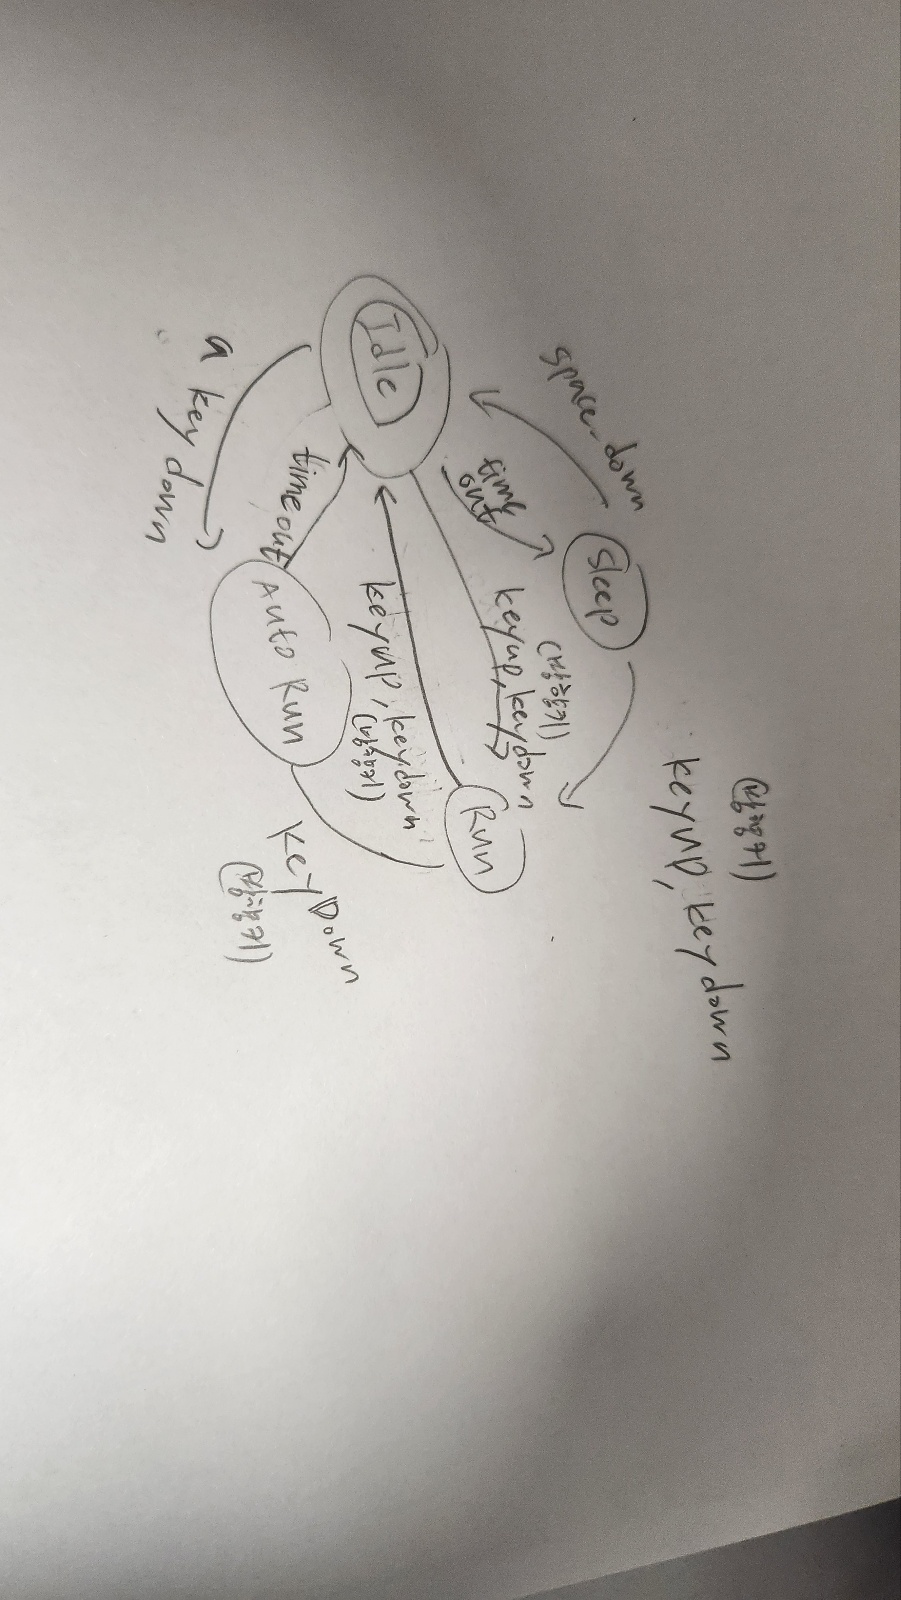 (방향키)
keyup, keydown
space_down
Sleep
time
out
(방향키)
keyup, keydown
Run
Idle
keyup, keydown
(방향키)
timeout
Auto Run
KeyDown
(방향키)
a key down